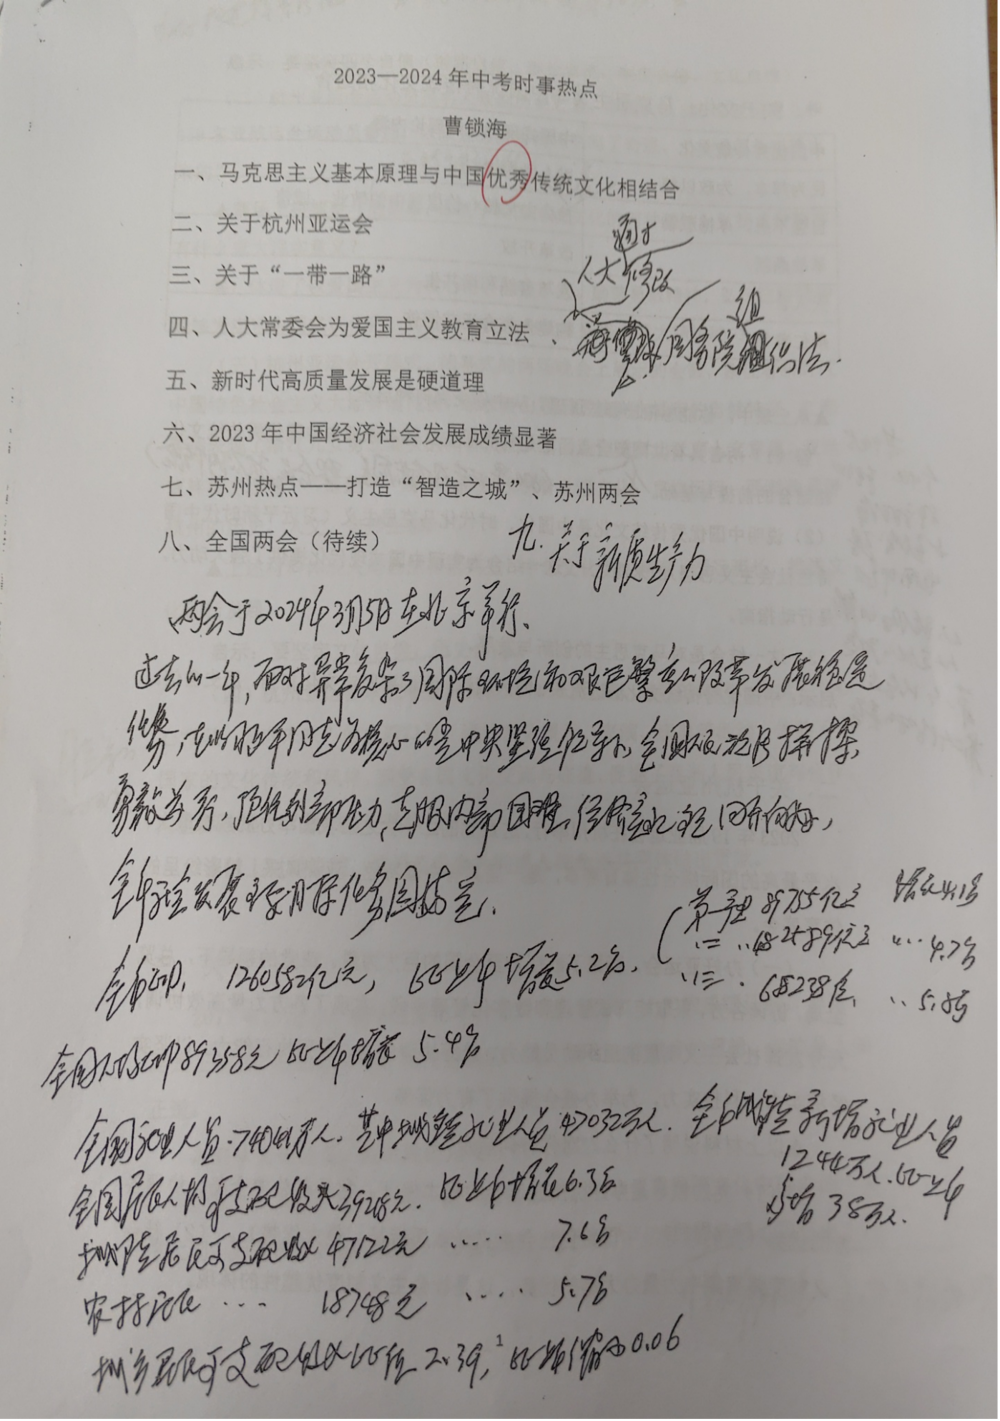 2023—2024年中考时事热点
曹锁海
一、马克思主义基本原理与中国优秀传统文化相结合
二、关于杭州亚运会
通过
三、关于“一带一路”
人大修改
四、人大常委会为爱国主义教育立法
、国务院组织法.
五、新时代高质量发展是硬道理
六、2023年中国经济社会发展成绩显著
七、苏州热点——打造“智造之城”、苏州两会
八、全国两会（待续）
九.关于新质生产力
两会于2024年3月5日在北京举行.
过去的一年,面对异常复杂的国际环境和艰巨繁重的改革发展稳定
任务,在以习近平同志为核心的党中央坚强领导下,全国人民
,顶住外部压力,克服内部困难,经济回升向好,
全年经济社会发展主要目标任务圆满完成.
全年GDP. 1260582亿元, 比上年增长5.2%.
第一产业 89755亿元 增长4.1%
〃二 〃 482589亿元 〃… 4.7%
〃三 . 688238亿. 〃. 5.8%
全国人均GDP 89358元 比上年增长 5.4%
全国就业人员.74041万人. 其中城镇就业人员47032万人. 全年城镇新增就业人员
1244万人.比上年
多增38万人.
全国居民人均可支配收入39218元. 比上年增长6.3%
城镇居民可支配收入47122元 ..... 7.6%
农村居民 … 18748元 .... 5.7%
城乡居民可支配收入比值 2.39, 比上年缩小0.06
1